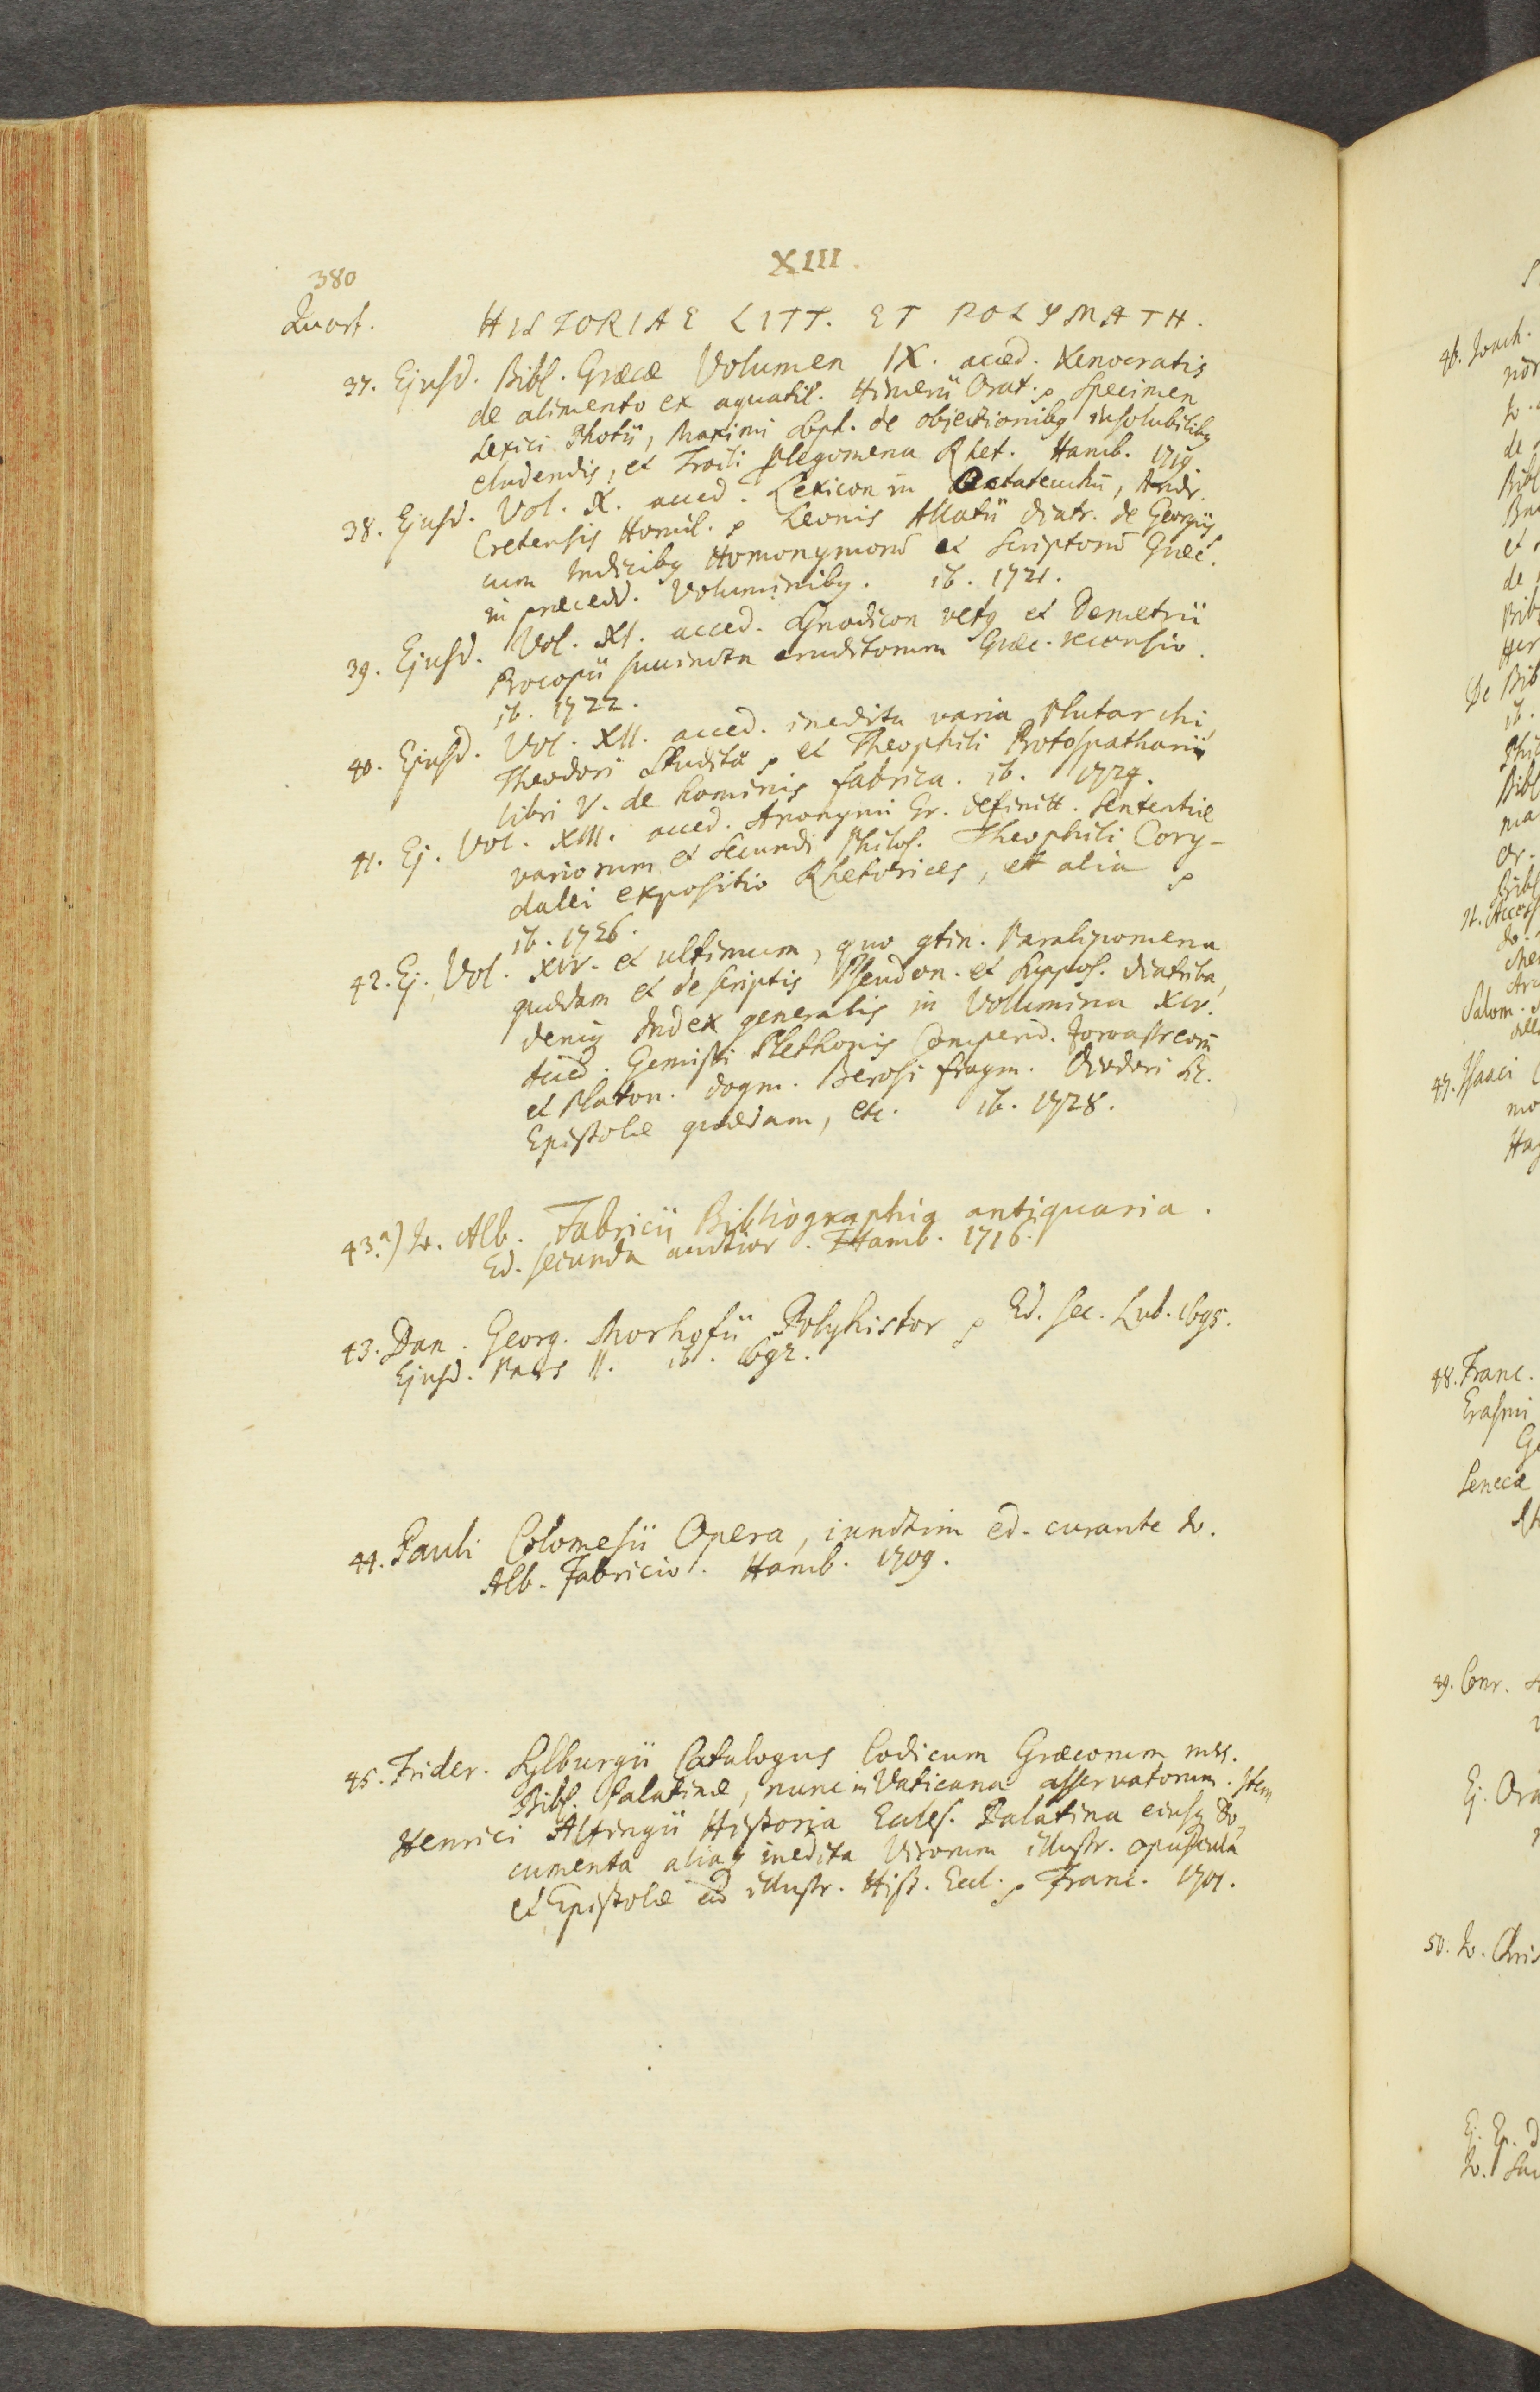 380
XIII.
Quart.
HISTORIAE LITT. ET POLYMATH.
37. Ejusd. Bibl. Græcæ Volumen IX. acced. Xenocratis
de alimento ex aquatil. Himerii Orat. Specimen
Lexici Photii, Maximi Soph. de objectionibꝯ insolubilibꝯ
eludendis, et Troili plegomena Rhet. Hamb. 1719.
38. Ejusd. Vol. X. acced. Lexicon in Octateuchū, Andr.
Cretensis Homil. Leonis Allatii diatr. de Georgiis
cum Indicibꝯ Homonymorū et Scriptorū Græc.
in præcedd. Voluminibꝯ. ib. 1721.
39. Ejusd. Vol. XI. acced. Synodicon vetꝯ et Demetrii
Procopii succincta eruditorum Græc. recensio.
ib. 1722.
40. Ejusd. Vol. XII. acced. inedita varia Plutarchi
Theodori Studitæ et Theophili Protospatharii
libri V. de hominis fabrica. ib. 1724.
41. Ej. Vol. XIII. acced. Anonymi Gr. definitt. Sententiæ
variorum et Secundi Philos. Theophili Cory-
dalei expositio Rhetorices, et alia
ib. 1726.
42. Ej. Vol. XIV. et ultimum, quo ɔtin. Paralipomena
quædam et de scriptis Pseudon. et Suppos. diatriba,
deniq Index generalis in Volumina XIV.
Acced. Gemisti Plethonis Compend. Zoroastreorū
et Platon. dogm. Berosi fragm. Diodori Sic.
Epistolæ quædam, etc. ib. 1728.
43.a) Jo. Alb. Fabricii Bibliographia antiquaria.
Ed. secunda auctior. Hamb. 1716.
43. Dan. Georg. Morhofii Polyhistor Ed. sec. Lub. 1695.
Ejusd. Pars II. ib. 1692.
44. Pauli Colomesii Opera, iunctim ed. curante Jo.
Alb. Fabricio. Hamb. 1709.
45. Frider. Sylburgii Catalogus Codicum Græcorum mss.
Bibl. Palatinæ, nunc in Vaticana asservatorum. Item
Henrici Altingii Historia Eccles. Palatina eiusq Do-
cumenta aliaq inedita Virorum illustr. opuscula
et Epistolæ ad illustr. Hist. Eccl. Franc. 1701.
46. Joach.
de
Bibl
et
de
De Bib
ib.
Bibl
ma
Salom.
47. Isaaci
mo
48. Franc.
Erasmi
Senecæ
49. Conr.
Ej. Ora
50. Jo. Chris
Ej. Ep. d